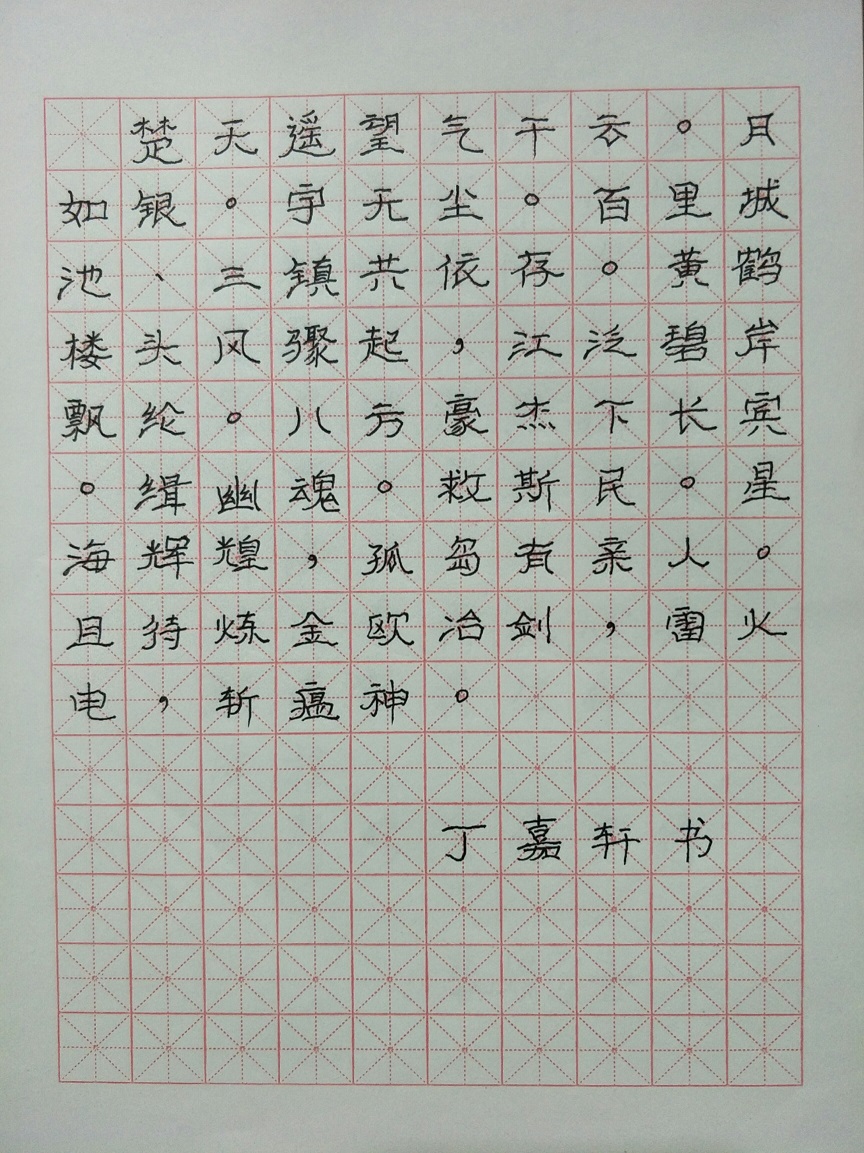 楚天遥望气干云。月
如银。宇无尘。百里城
池、三镇共依存。黄鹤
楼头风骤起，江泛碧岸
飘纶。八方豪杰下长宾
。缉幽魂。救斯民。星
海辉煌，孤岛有亲人。
且待炼金欧冶剑，雷火
电，斩瘟神。
丁嘉轩书